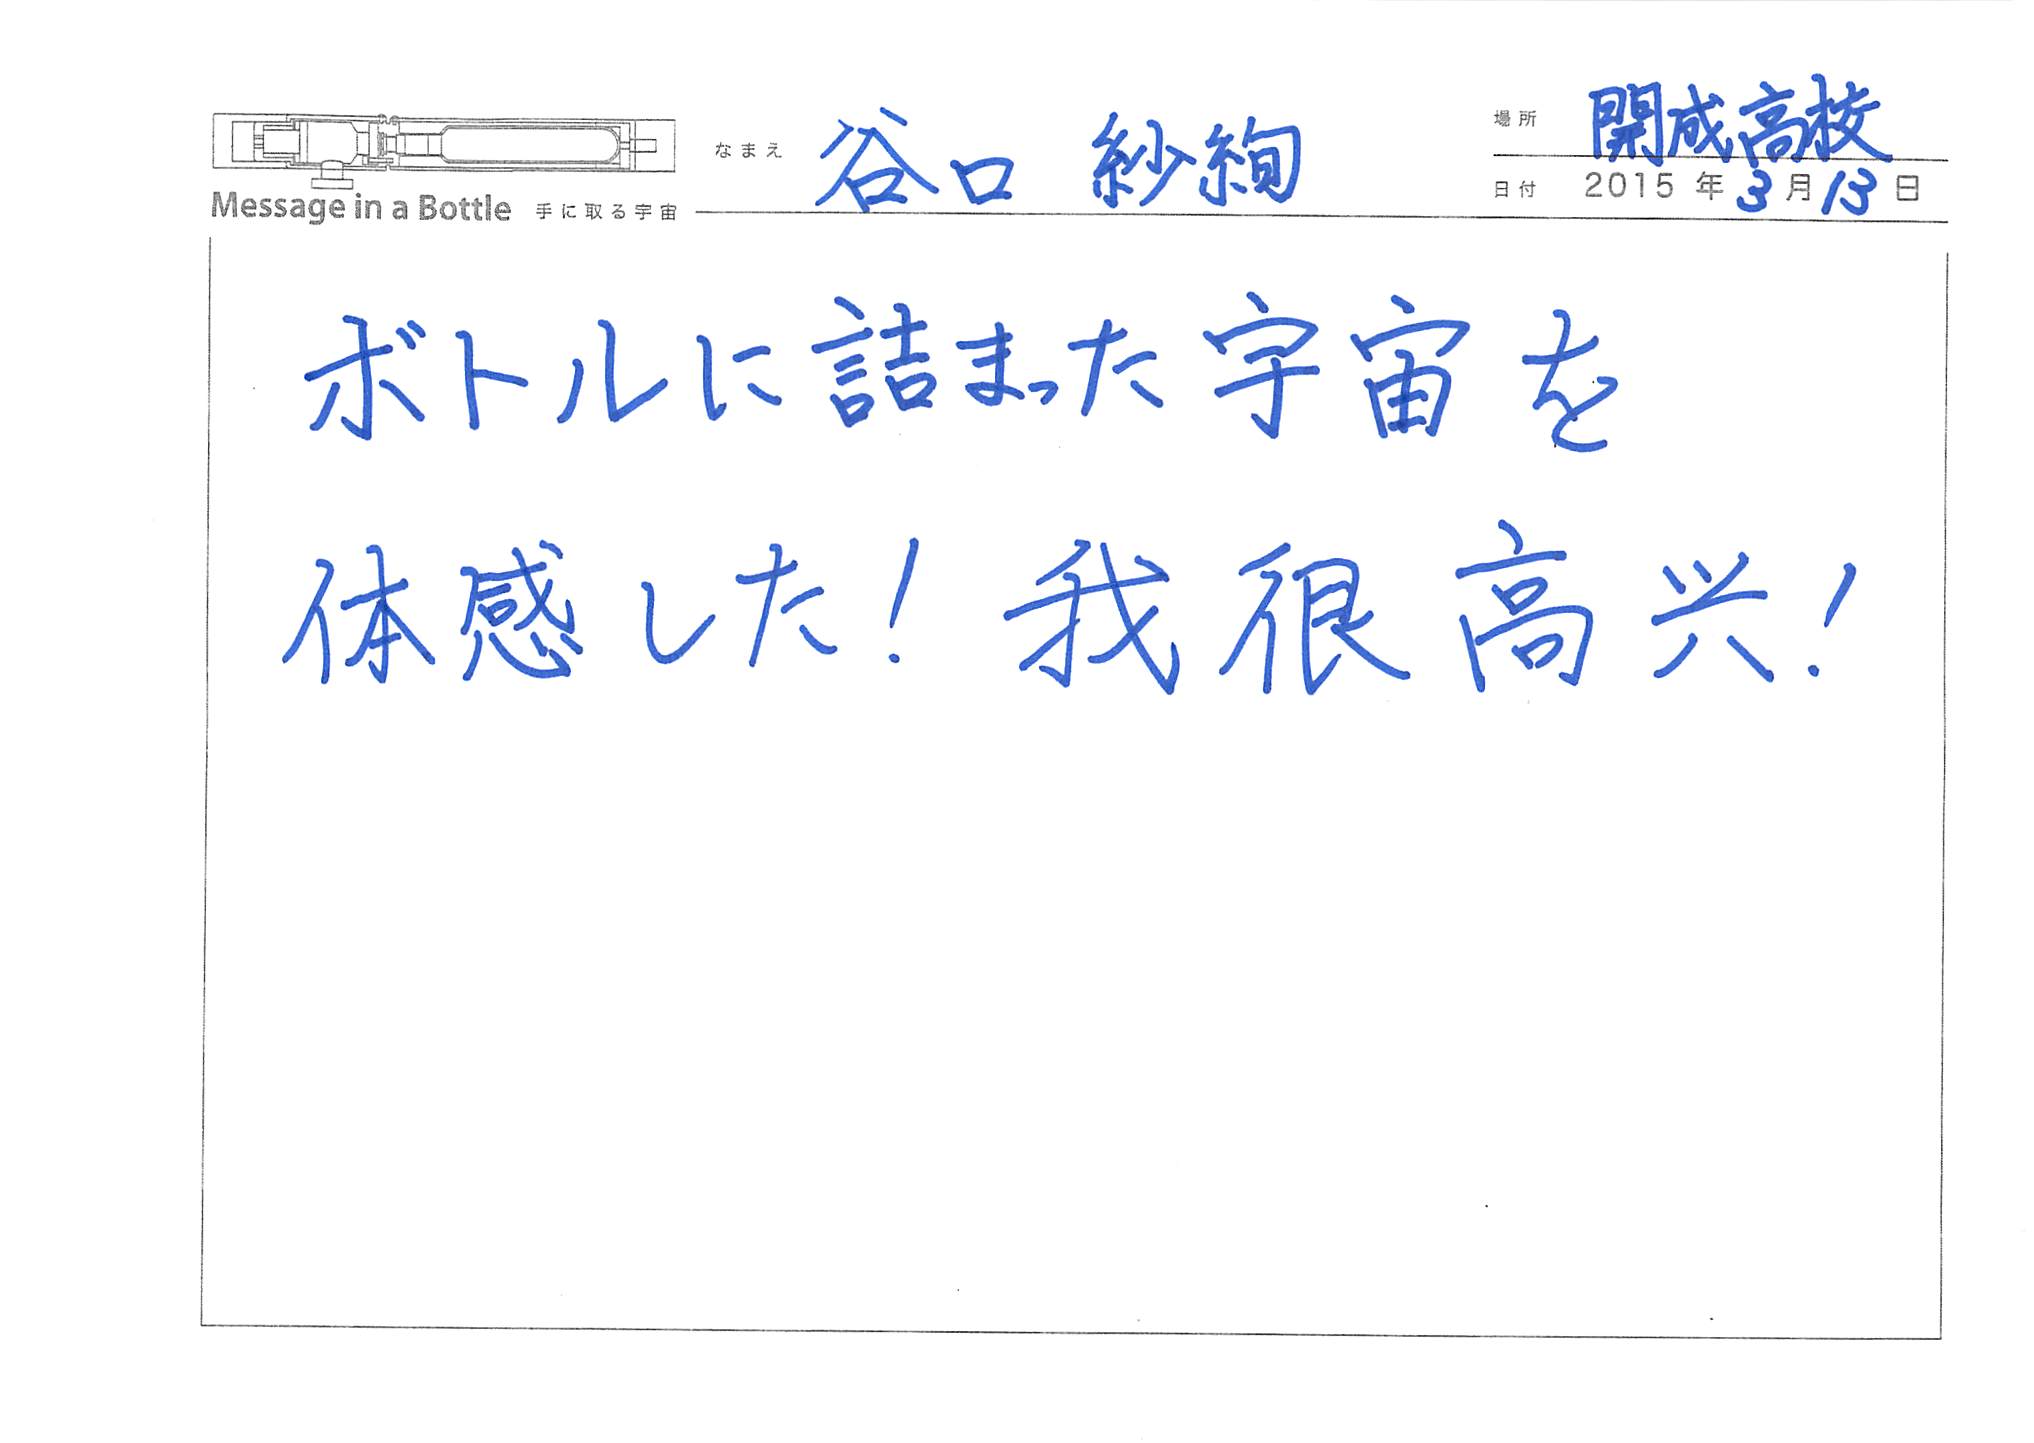 なまえ 谷口 紗絢
場所 開成高校
日付 2015 年 3 月 13 日
Message in a Bottle 手に取る宇宙
ボトルに詰まった宇宙を
体感した! 我很高兴!